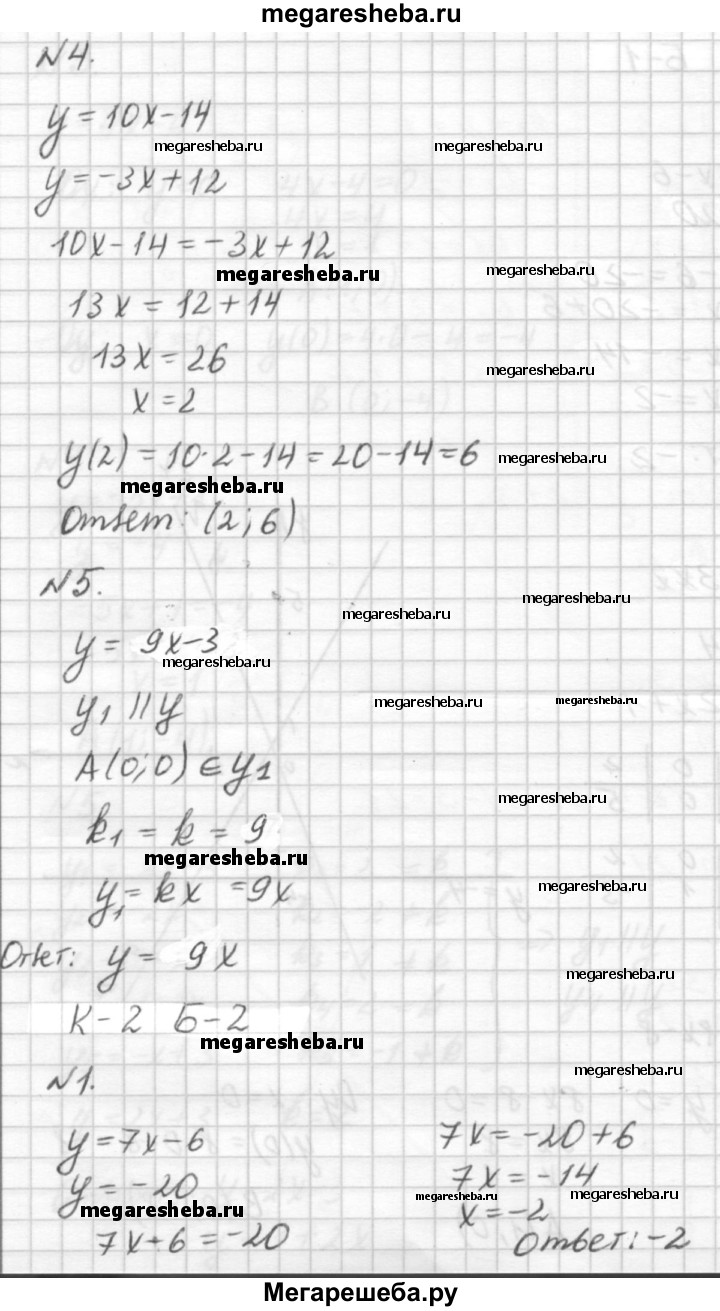 megaresheba.ru
N4.
y = 10x - 14
megaresheba.ru megaresheba.ru
y = -3x + 12
10x - 14 = -3x + 12
megaresheba.ru megaresheba.ru
13x = 12 + 14
13x = 26
megaresheba.ru
x = 2
y(2) = 10·2 - 14 = 20 - 14 = 6
megaresheba.ru
megaresheba.ru
Ответ: (2; 6)
N5.
megaresheba.ru
megaresheba.ru
y = 9x - 3
megaresheba.ru
y₁ || y
megaresheba.ru megaresheba.ru
A(0; 0) ∈ y₁
megaresheba.ru
k₁ = k = 9
megaresheba.ru
y₁ = kx = 9x
megaresheba.ru
Ответ: y = 9x
megaresheba.ru
К-2 Б-2
megaresheba.ru
megaresheba.ru
N1.
y = 7x - 6
y = -20
megaresheba.ru
7x + 6 = -20
7x = -20 + 6
7x = -14
megaresheba.ru megaresheba.ru
x = -2
Ответ: -2
Мегарешеба.ру